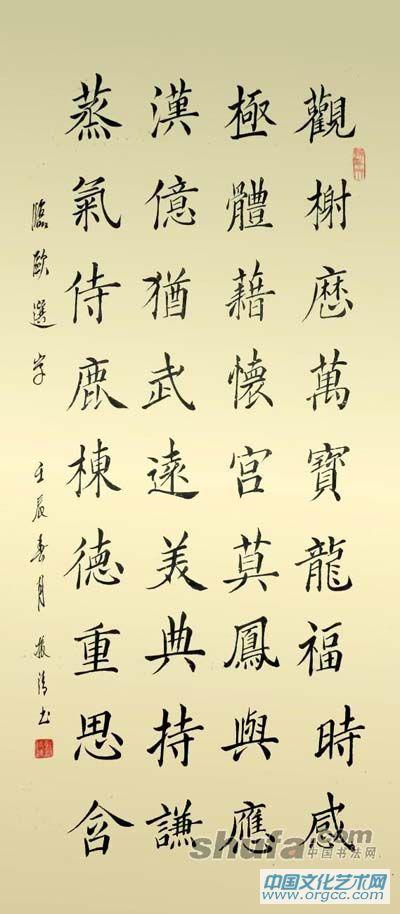 觀榭歷萬寶龍福時感
極體藉懷宮莫鳳與應
漢億猶武遠美典持謙
蒸氣侍鹿棟德重思含
臨歐選字
壬辰春月 書
shufa.com
中国书法网
中国文化艺术网
www.orgcc.com